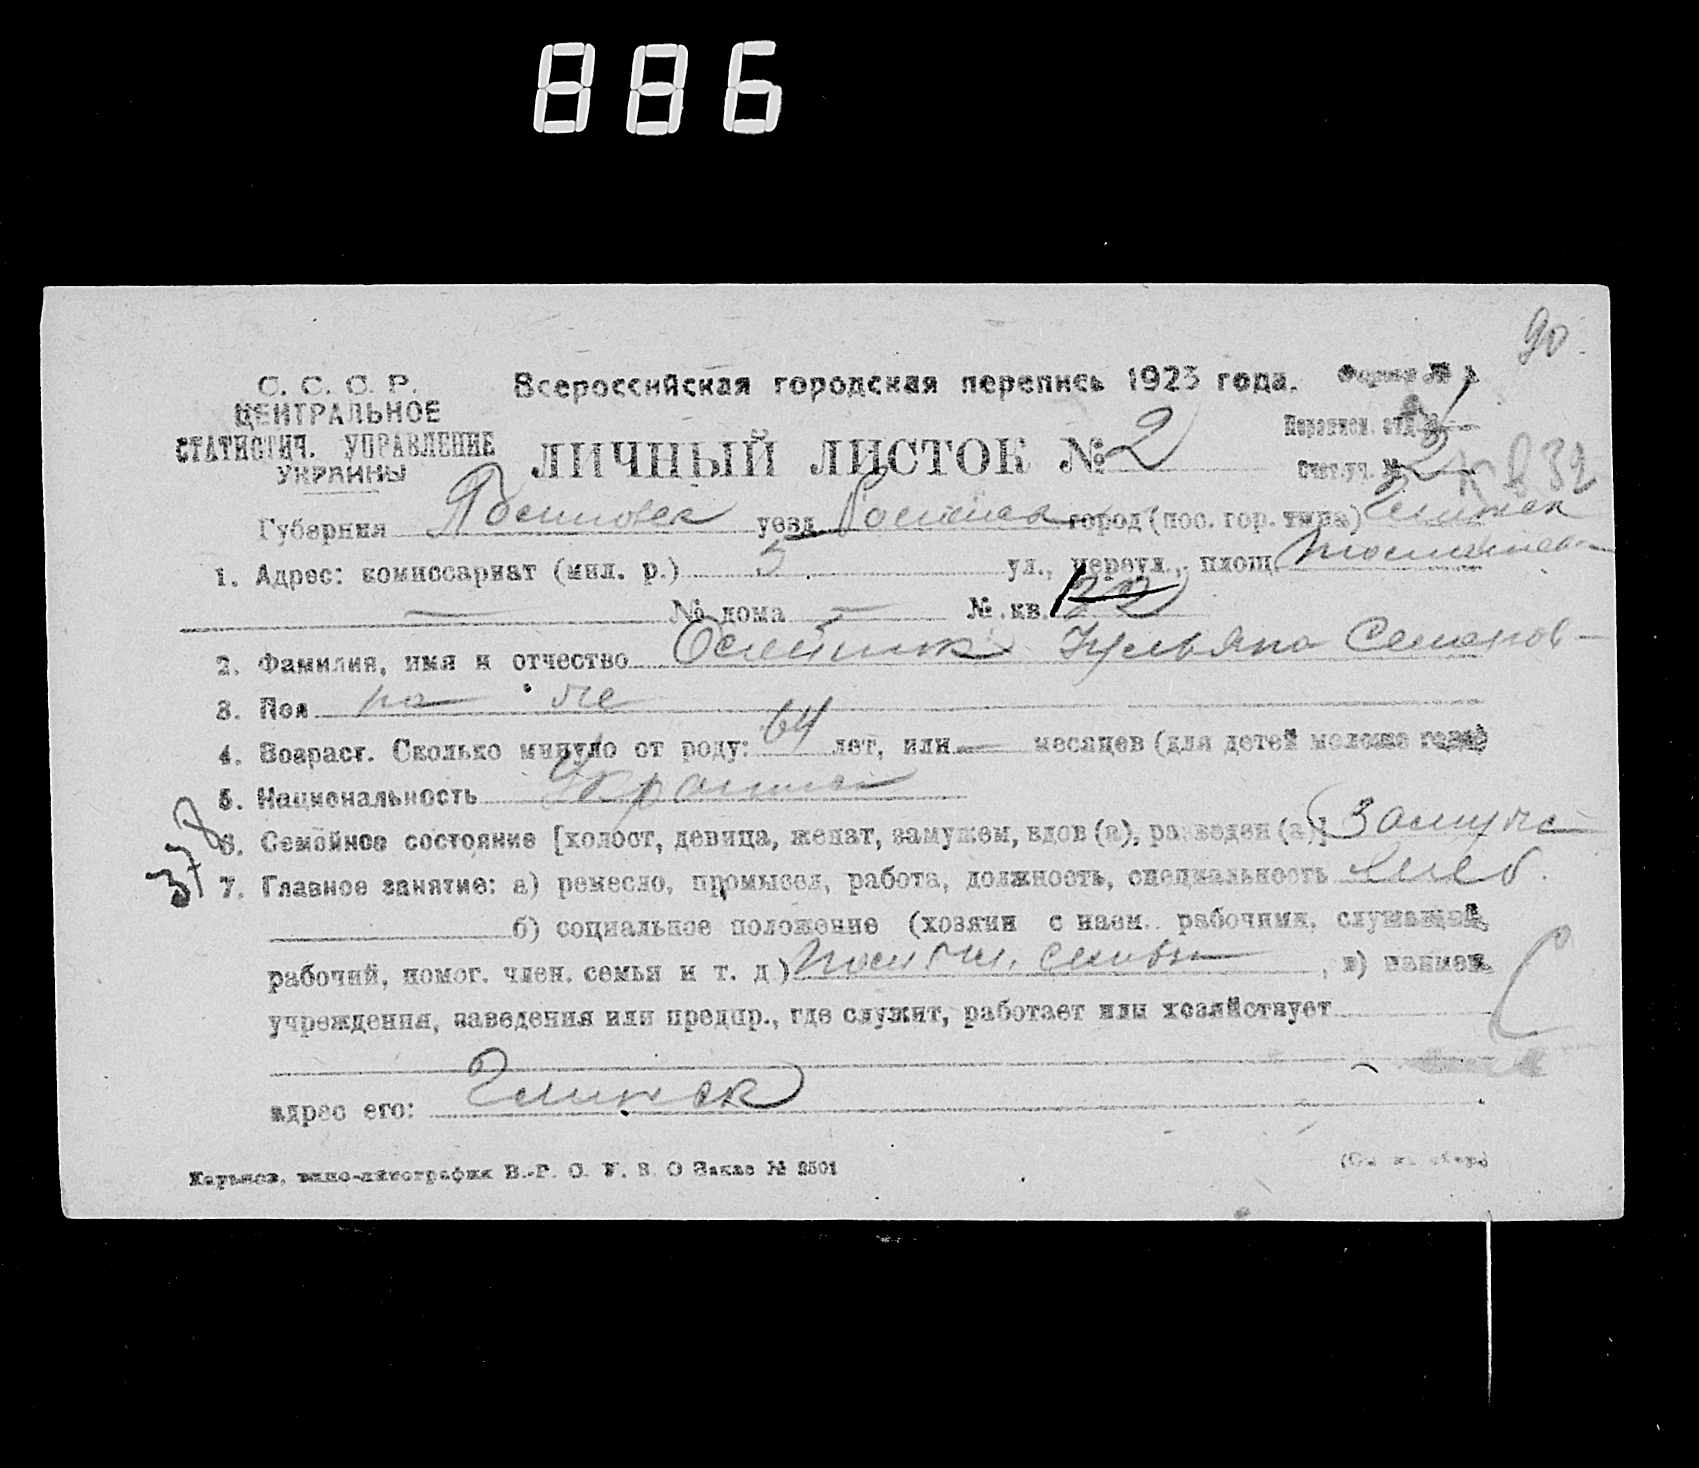 886
90
С. С. С. Р.
ЦЕНТРАЛЬНОЕ
СТАТИСТИЧ. УПРАВЛЕНИЕ
УКРАИНЫ
Всероссийская городская перепись 1923 года.
Форма № 1
ЛИЧНЫЙ ЛИСТОК № 2
Счет. уч. № 2
Губерния уезд город (пос. гор. типа) Глинск
1. Адрес: комиссариат (мил. р.) 5 ул., переул., площ.
— № дома — № кв.
2. Фамилия, имя и отчество Олейник Ульяна Семенов-
3. Пол
4. Возраст. Сколько минуло от роду: 64 лет, или — месяцев (для детей моложе года)
5. Национальность
6. Семейное состояние [холост, девица, женат, замужем, вдов (а), разведен (а)] Замуж
37
7. Главное занятие: а) ремесло, промысел, работа, должность, специальность
б) социальное положение (хозяин с наем. рабочими, служащий,
рабочий, помог. член. семьи и т. д.) семьи, в) наимен.
учреждения, заведения или предпр., где служит, работает или хозяйствует
адрес его: Глинск
Харьков, типо-литография В.-Р. С. У. В. О Заказ № 2501